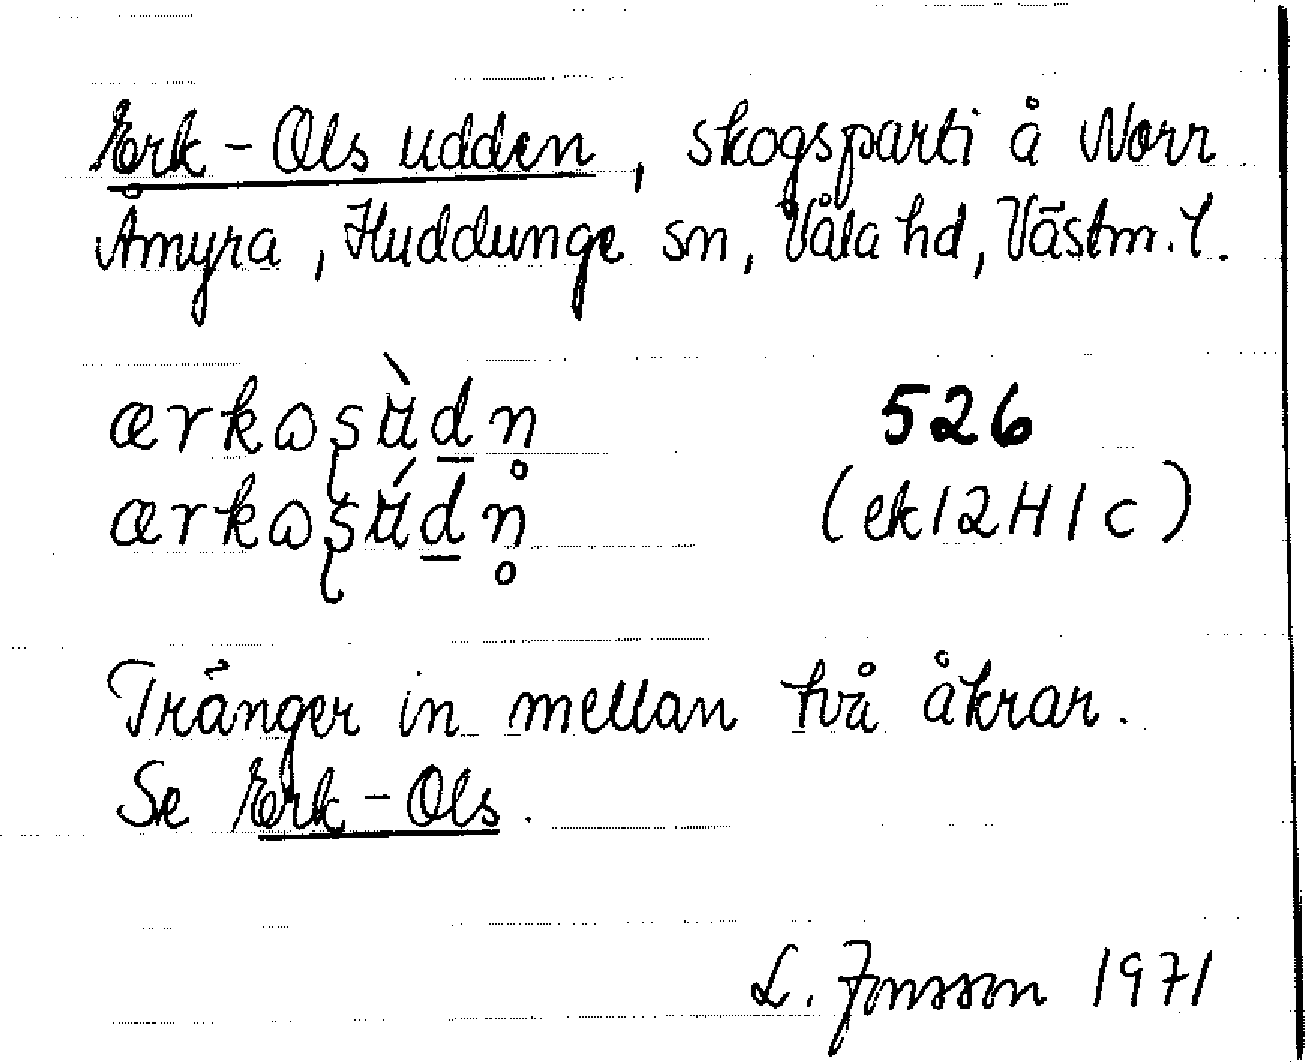 Erk-Ols udden, skogsparti å Norr
Åmyra, Huddunge sn, Våla hd, Västm. l.
ærkɷʂʉ̀dn̥
526
ærkɷʂʉ́dn̥
(ek 12H1c)
Tränger in mellan två åkrar.
Se Erk-Ols.
L. Jonsson 1971